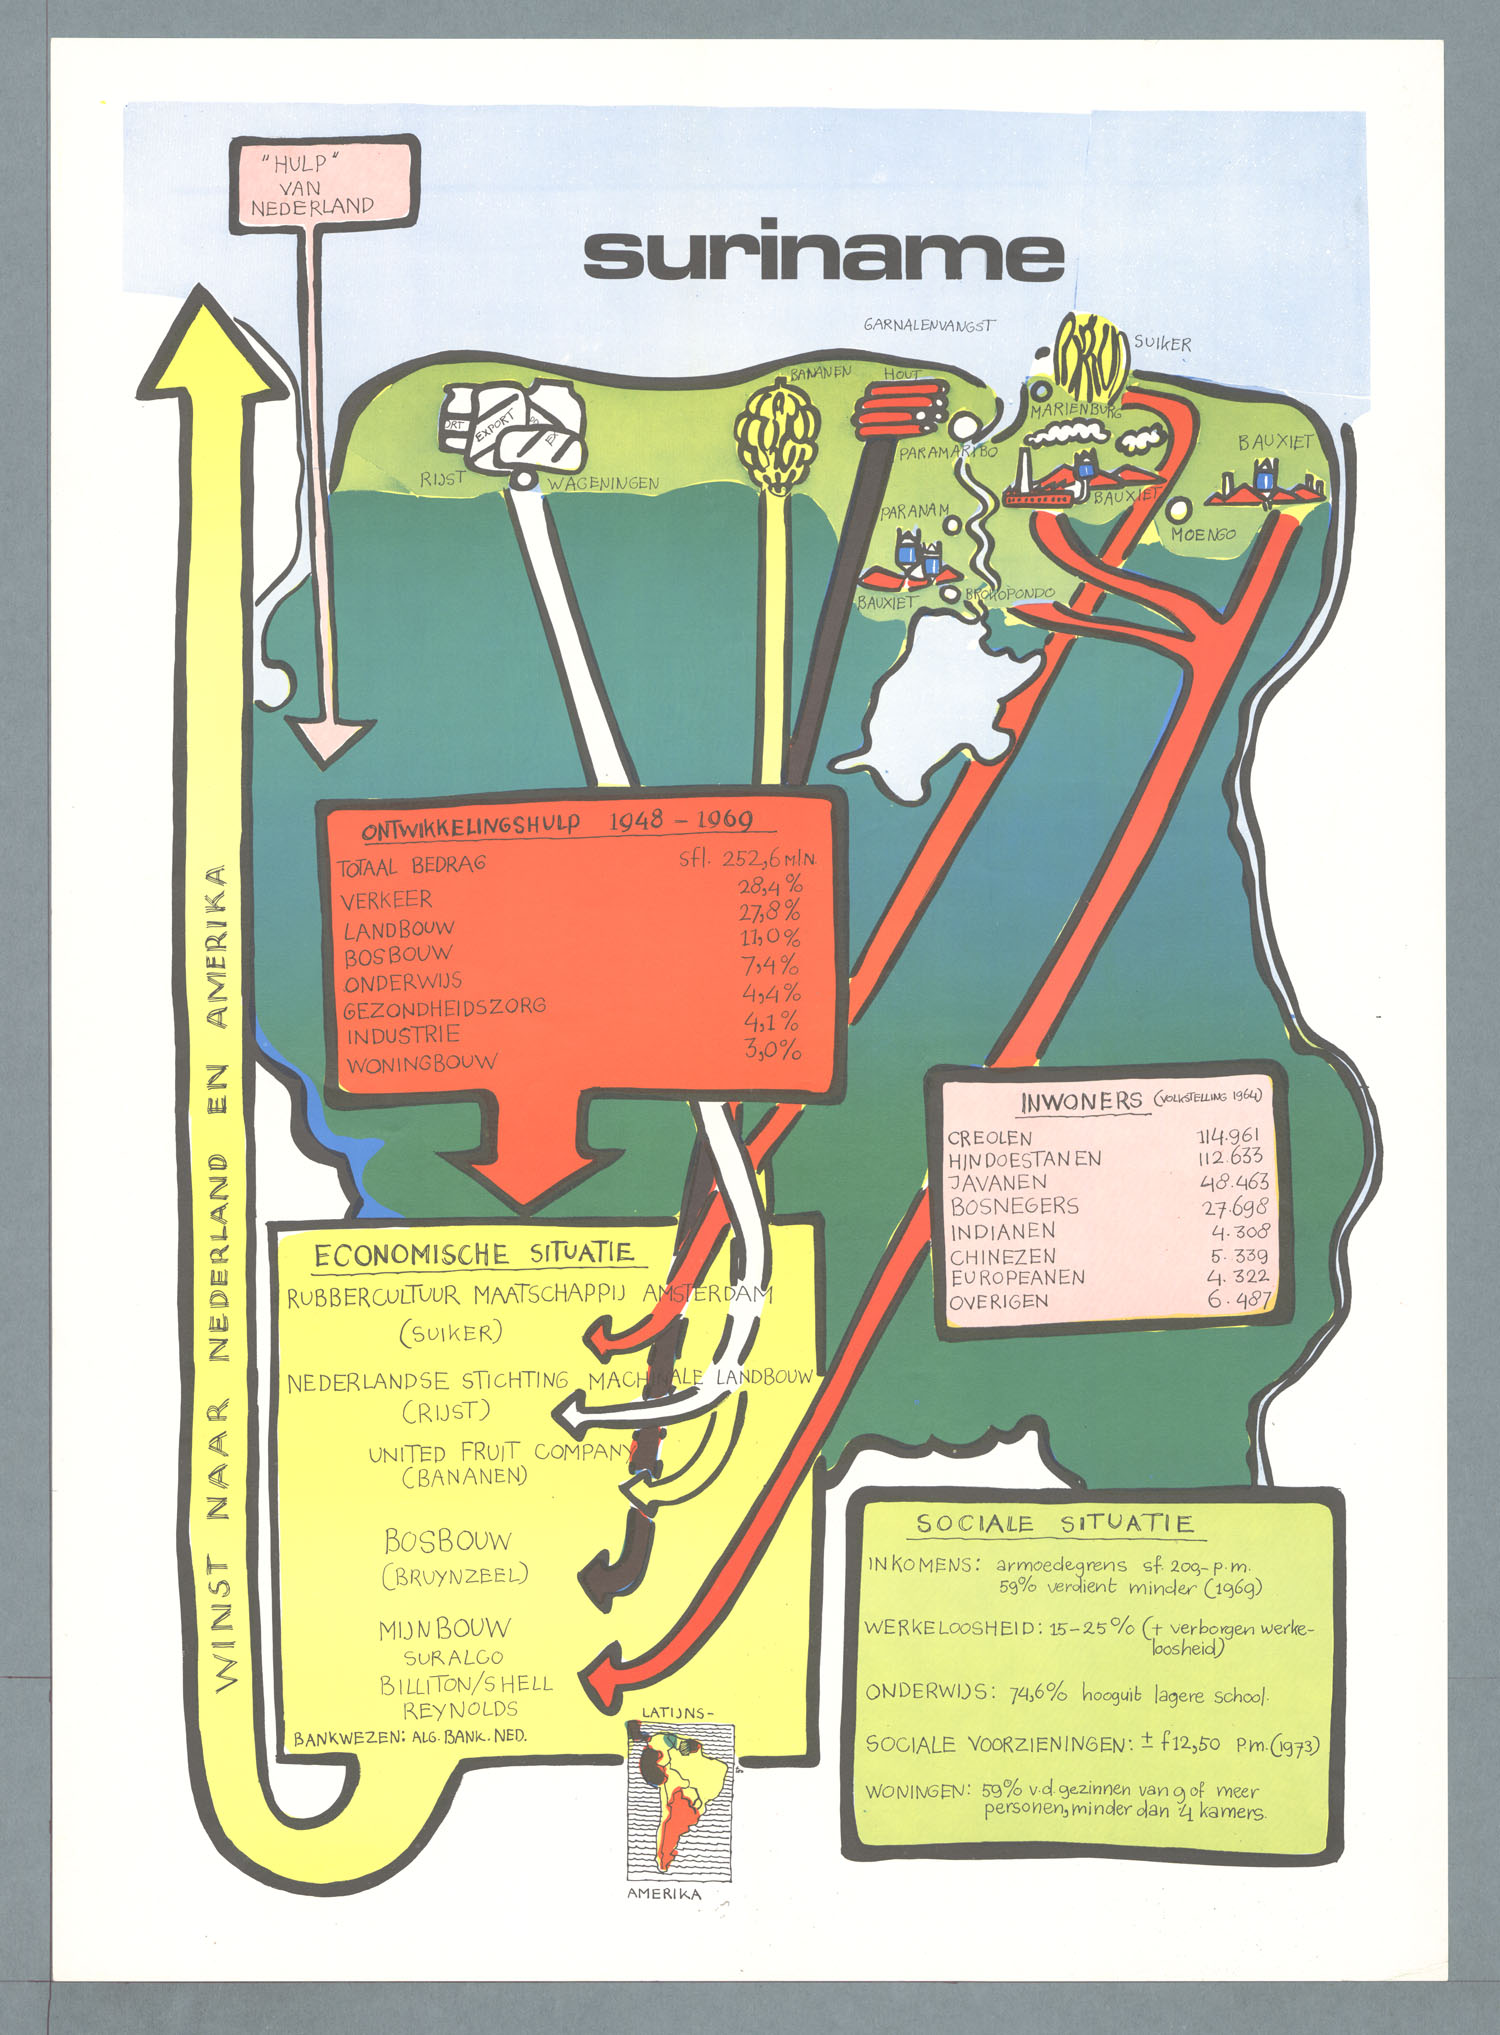 "HULP"
VAN
NEDERLAND
suriname
GARNALENVANGST
SUIKER
BANANEN
HOUT
MARIENBURG
EXPORT
RIJST
WAGENINGEN
PARAMARIBO
BAUXIET
BAUXIET
PARANAM
MOENGO
BAUXIET
BROKOPONDO
WINST NAAR NEDERLAND EN AMERIKA
ONTWIKKELINGSHULP 1948 - 1969
TOTAAL BEDRAG sfl. 252,6 MLN.
VERKEER 28,4%
LANDBOUW 27,8%
BOSBOUW 11,0%
ONDERWIJS 7,4%
GEZONDHEIDSZORG 4,4%
INDUSTRIE 4,1%
WONINGBOUW 3,0%
INWONERS (VOLKSTELLING 1964)
CREOLEN 114.961
HINDOESTANEN 112.633
JAVANEN 48.463
BOSNEGERS 27.698
INDIANEN 4.308
CHINEZEN 5.339
EUROPEANEN 4.322
OVERIGEN 6.487
ECONOMISCHE SITUATIE
RUBBERCULTUUR MAATSCHAPPIJ AMSTERDAM
(SUIKER)
NEDERLANDSE STICHTING MACHINALE LANDBOUW
(RIJST)
UNITED FRUIT COMPANY
(BANANEN)
BOSBOUW
(BRUYNZEEL)
MIJNBOUW
SURALCO
BILLITON/SHELL
REYNOLDS
BANKWEZEN: ALG. BANK. NED.
LATIJNS-
AMERIKA
SOCIALE SITUATIE
INKOMENS: armoedegrens sf. 200,- p.m.
59% verdient minder (1969)
WERKELOOSHEID: 15-25% (+ verborgen werke-
loosheid)
ONDERWIJS: 74,6% hooguit lagere school.
SOCIALE VOORZIENINGEN: ± f12,50 p.m. (1973)
WONINGEN: 59% v.d. gezinnen van 9 of meer
personen, minder dan 4 kamers.